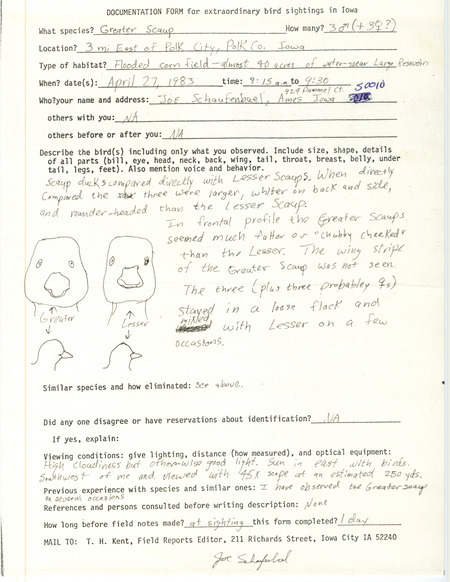 DOCUMENTATION FORM for extraordinary bird sightings in Iowa
What species? Greater Scaup How many? 3♂(+3♀?)
Location? 3 mi East of Polk City, Polk Co. Iowa
Type of habitat? Flooded corn field - almost 40 acres of water - near Large Reservoir
When? date(s): April 27, 1983 time: 9:15 am to 9:30
Who? your name and address: Joe Schaufenbuel, 929 Dammel Ct. Ames Iowa 50010
others with you: NA
others before or after you: NA
Describe the bird(s) including only what you observed. Include size, shape, details
of all parts (bill, eye, head, neck, back, wing, tail, throat, breast, belly, under
tail, legs, feet). Also mention voice and behavior.
Scaup ducks compared directly with Lesser Scaups. When directly
compared the three were larger, whiter on back and side,
and rounder-headed than the Lesser Scaup.
In frontal profile the Greater Scaups
seemed much fatter or "chubby cheeked"
than the Lesser. The wing stripe
of the Greater Scaup was not seen.
The three (plus three probably ♀s)
stayed in a loose flock and
mixed with Lesser on a few
occasions.
Greater Lesser
Similar species and how eliminated: see above.
Did any one disagree or have reservations about identification? NA
If yes, explain:
Viewing conditions: give lighting, distance (how measured), and optical equipment:
High cloudiness but otherwise good light. Sun in east with birds
Southwest of me and viewed with 45x scope at an estimated 250 yds.
Previous experience with species and similar ones: I have observed the Greater scaup
on several occasions
References and persons consulted before writing description: None
How long before field notes made? at sighting this form completed? 1 day
MAIL TO: T. H. Kent, Field Reports Editor, 211 Richards Street, Iowa City IA 52240